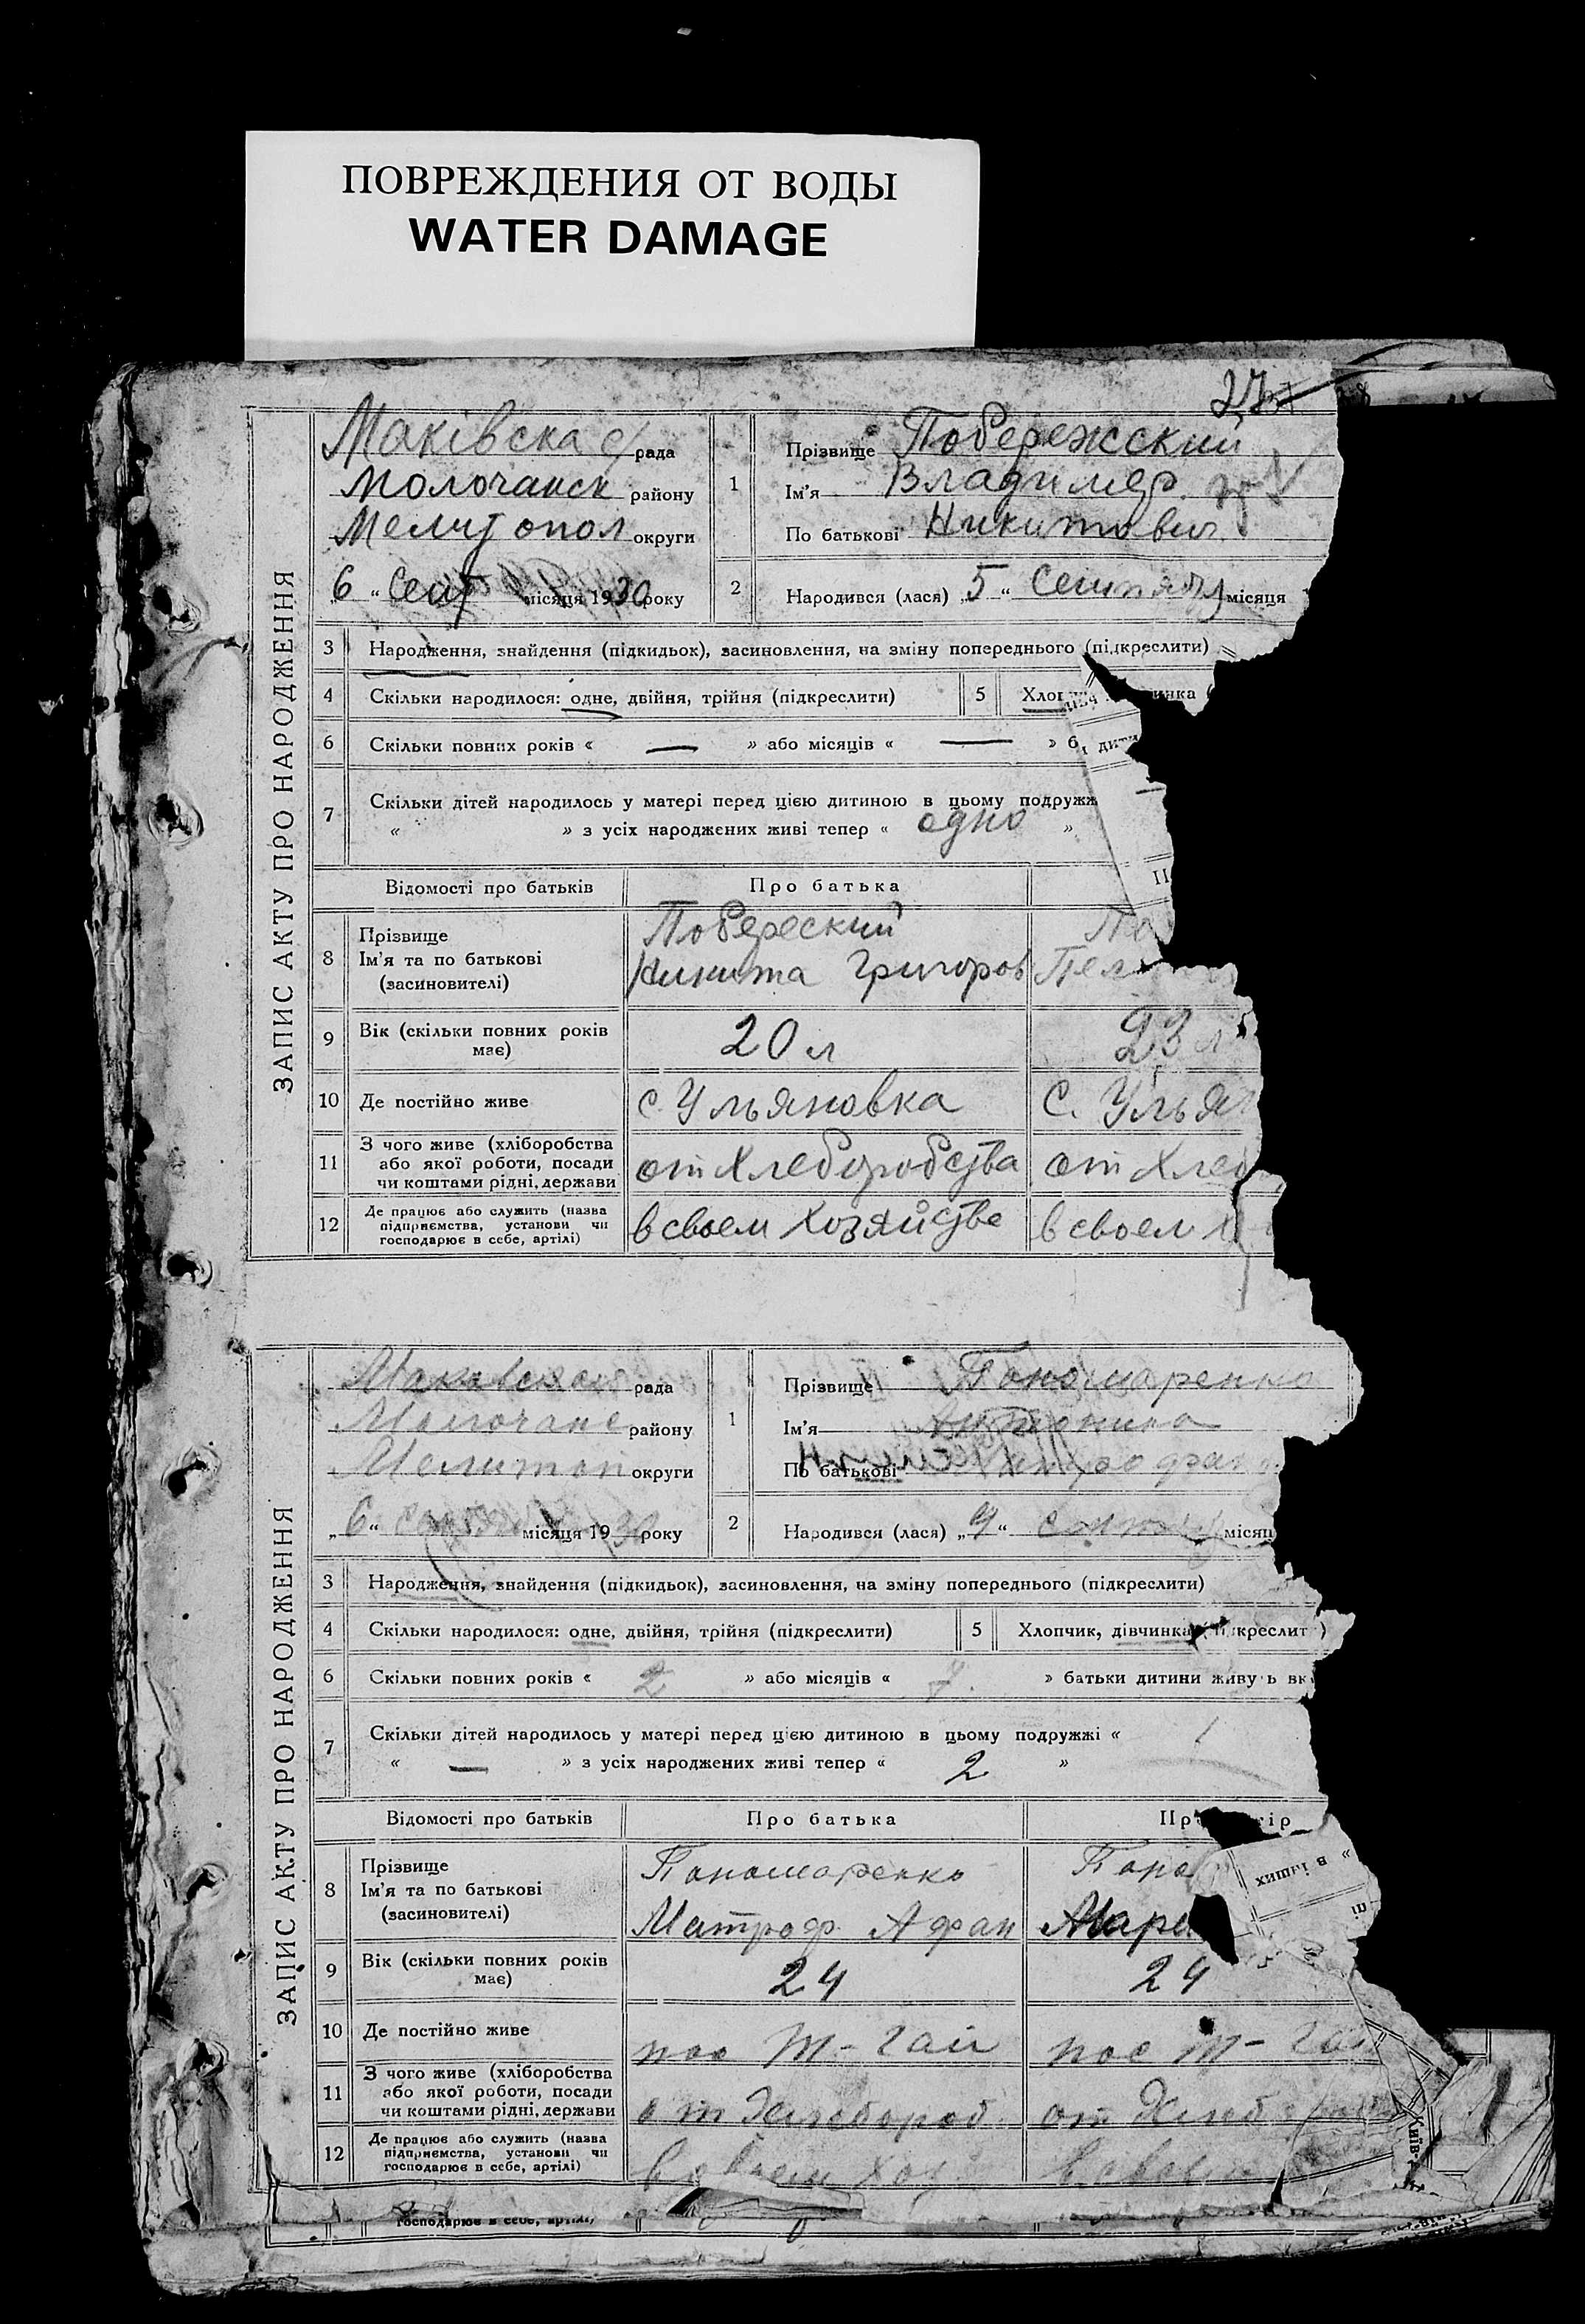 ПОВРЕЖДЕНИЯ ОТ ВОДЫ
WATER DAMAGE
27
ЗАПИС АКТУ ПРО НАРОДЖЕННЯ
Маківска с/рада
Молочанск району
Мелітопол округи
„6“ Сент місяця 1930 року
1
Прізвище Побережский
Ім’я Владимер
По батькові Никитович
2
Народився (лася) „5“ Сентября місяця
3 Народження, знайдення (підкидьок), засиновлення, на зміну попереднього (підкреслити)
4 Скільки народилося: одне, двійня, трійня (підкреслити) 5
6 Скільки повних років « — » або місяців « — »
7 Скільки дітей народилось у матері перед цією дитиною в цьому подружж
« » з усіх народжених живі тепер « одно »
Відомості про батьків Про батька
8 Прізвище
Ім’я та по батькові
(засиновителі)
Побереский
Никита Григоров
9 Вік (скільки повних років має) 20 л 23 л
10 Де постійно живе с. Ульяновка с. Улья
11 З чого живе (хліборобства або якої роботи, посади чи коштами рідні, держави от хлеборобства от хлеб
12 Де працює або служить (назва підприємства, установи чи господарює в себе, артілі) в своем хозяйстве в своем х
ЗАПИС АКТУ ПРО НАРОДЖЕННЯ
Маковская рада
Молочанс району
Мелитоп округи
„6“ місяця 1930 року
1
Прізвище Пономаренко
Ім’я Антонина
По батькові Митрофан
2
Народився (лася) „4“ місяц
3 Народження, знайдення (підкидьок), засиновлення, на зміну попереднього (підкреслити)
4 Скільки народилося: одне, двійня, трійня (підкреслити) 5 Хлопчик, дівчинка
6 Скільки повних років « 2 » або місяців « 7. » батьки дитини живуть вк
7 Скільки дітей народилось у матері перед цією дитиною в цьому подружжі « 1
« — » з усіх народжених живі тепер « 2 »
Відомості про батьків Про батька
8 Прізвище
Ім’я та по батькові
(засиновителі)
Пономаренко Поно
Митроф Афан Мари
9 Вік (скільки повних років має) 24 24
10 Де постійно живе пос Ш-Гай пос Ш-Гай
11 З чого живе (хліборобства або якої роботи, посади чи коштами рідні, держави от хлебороб от хлеб
12 Де працює або служить (назва підприємства, установи чи господарює в себе, артілі) в своем хоз в своем
господарює в себе, артілі)